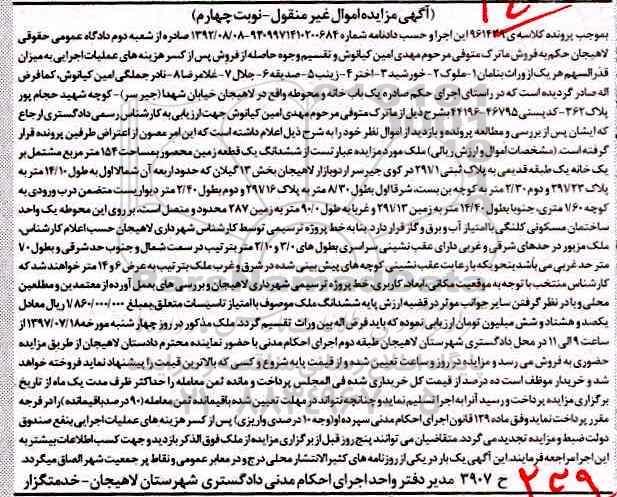 (آگهی مزایده اموال غیر منقول-نوبت چهارم)
بموجب پرونده کلاسه ی ۹۶۱۴۴۹ این اجرا و حسب دادنامه شماره ۹۴۰۹۹۷۱۴۱۰۲۰۰۶۸۴-۱۳۹۲/۰۸/۰۸ صادره از شعبه دوم دادگاه عمومی حقوقی
لاهیجان حکم به فروش ماترک متوفی مرحوم مهدی امین کیانوش و تقسیم وجوه حاصله از فروش پس از کسر هزینه های عملیات اجرایی به میزان
قدرالسهم هر یک از وراث بنامان ۱-ملوک ۲-خورشید ۳-اختر ۴-زینب ۵-صدیقه ۶-جلال ۷-غلامرضا ۸-نادر جملگی امین کیانوش، کمافرض
اله صادر گردیده است که در راستای اجرای حکم صادره یک باب خانه و محوطه واقع در لاهیجان خیابان شهدا (جیر سر) -کوچه شهید حجام پور
پلاک ۳۶۲-کدپستی ۴۶۷۹۵-۴۴۱۹۶ بشرح ذیل از ماترک متوفی مرحوم مهدی امین کیانوش جهت ارزیابی به کارشناس رسمی دادگستری ارجاع
که ایشان پس از بررسی و مطالعه پرونده و بازدید از اموال نظر خود را به شرح ذیل اعلام داشته است که این امر مصون از اعتراض طرفین پرونده قرار
گرفته است. (مشخصات اموال و ارزش ریالی) ملک مورد مزایده عبارتست از ششدانگ یک قطعه زمین محصور بمساحت ۱۵۴ متر مربع مشتمل بر
یک خانه یک طبقه قدیمی به پلاک ثبتی ۲۹۷/۱ در کوی جیرسر اردوبازار لاهیجان بخش ۱۳ گیلان که حدود اربعه آن شمالا اول به طول ۱۴/۱۰ متر به
پلاک ۲۹۷/۲۳ و دوم ۲/۳۰ متر به کوچه بن بست، شرقا اول بطول ۸/۳۰ متر به پلاک ۲۹۷/۱۶ و دوم بطول ۲/۴۰ متر دیواریست متضمن درب ورودی به
کوچه ۱/۶۰ متری، جنوبا بطول ۱۴/۴۰ متر به زمین ۲۹۱/۱۳ و غربا به طول ۹/۰۰ متر به زمین ۲۸۷ محدود و متصل است، بر روی این محوطه یک واحد
ساختمان مسکونی کلنگی با امتیاز آب و برق و گاز قرار دارد. بنا به خط پروژه ترسیمی توسط کارشناس شهرداری لاهیجان حسب اعلام کارشناس،
ملک مزبور در حدهای شرقی و غربی دارای عقب نشینی سراسری بطول های ۳/۰ و ۲/۱۰ متر بترتیب در سمت شمال و جنوب حد شرقی و بطول ۷۰
متر حد غربی می باشد بنحویکه با رعایت عقب نشینی کوچه های پیش بینی شده در شرق و غرب ملک بترتیب به عرض ۶ و ۱۴ متر خواهند شد که
کارشناس منتخب با توجه به موقعیت مکانی، ابعاد کاربری، خط پروژه ترسیمی شهرداری لاهیجان و بررسی های بعمل آورده از معتمدین و مطلعین
محلی و با در نظر گرفتن سایر جوانب موثر در قضیه ارزش پایه ششدانگ ملک موصوف با امتیاز تاسیسات متعلق بمبلغ ۱/۸۶۰/۰۰۰/۰۰۰ ریال معادل
یکصد و هشتاد و شش میلیون تومان ارزیابی نموده که باید فرض اله بین وراث تقسیم گردد. ملک مذکور در روز چهارشنبه مورخه ۱۳۹۷/۰۷/۱۸ از
ساعت ۹ الی ۱۱ در محل دادگستری شهرستان لاهیجان طبقه دوم اجرای احکام مدنی با حضور نماینده محترم دادستان لاهیجان از طریق مزایده
حضوری به فروش می رسد و مزایده در روز و ساعت تعیین شده و از قیمت پایه شروع و کسی که بالاترین قیمت را پیشنهاد نماید فروخته خواهد
شد و خریدار موظف است ده درصد از قیمت کل خریداری شده فی المجلس پرداخت و مانده ثمن معامله را حداکثر ظرف مدت یک ماه از تاریخ
برگزاری مزایده پرداخت و رسید آنرا به اجرا تسلیم نماید و چنانچه نتواند در مهلت تعیین شده باقیمانده ثمن معامله (۹۰ درصد باقیمانده) را در فرجه
مقرر پرداخت نماید وفق ماده ۱۲۹ قانون اجرای احکام مدنی سپرده او (وجه ۱۰ درصدی واریزی) پس از کسر هزینه های عملیات اجرایی بنفع صندوق
دولت ضبط و مزایده تجدید می گردد. متقاضیان می توانند پنج روز قبل از برگزاری مزایده از ملک فوق الذکر بازدید و جهت کسب اطلاعات بیشتر به
این اجرا مراجعه فرمایند. این آگهی یک بار در یکی از روزنامه های کثیر الانتشار محلی درج و در معابر عمومی و نقاط پر جمعیت شهر الصاق میگردد.
ح ۳۹۰۷ مدیر دفتر واحد اجرای احکام مدنی دادگستری شهرستان لاهیجان-خدمتگزار
۲۳۹